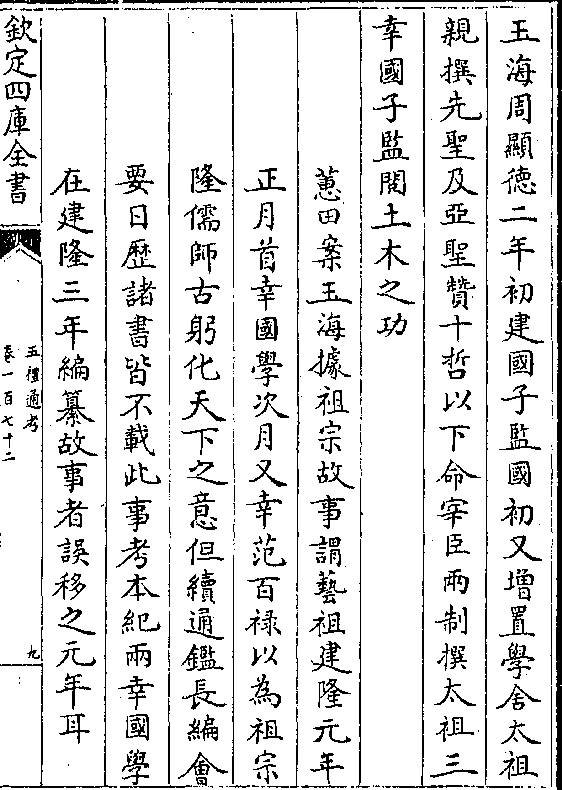 玉海周顯德二年初建國子監國初又增置學舍太祖
親撰先聖及亞聖贊十哲以下命宰臣兩制撰太祖三
幸國子監閱土木之功
蕙田案玉海據祖宗故事謂藝祖建隆元年
正月首幸國學次月又幸范百禄以為祖宗
隆儒師古躬化天下之意但續通鑑長編會
要日歴諸書皆不載此事考本紀兩幸國學
在建隆三年編纂故事者誤移之元年耳
欽定四庫全書
五禮通考
卷一百七十二
九